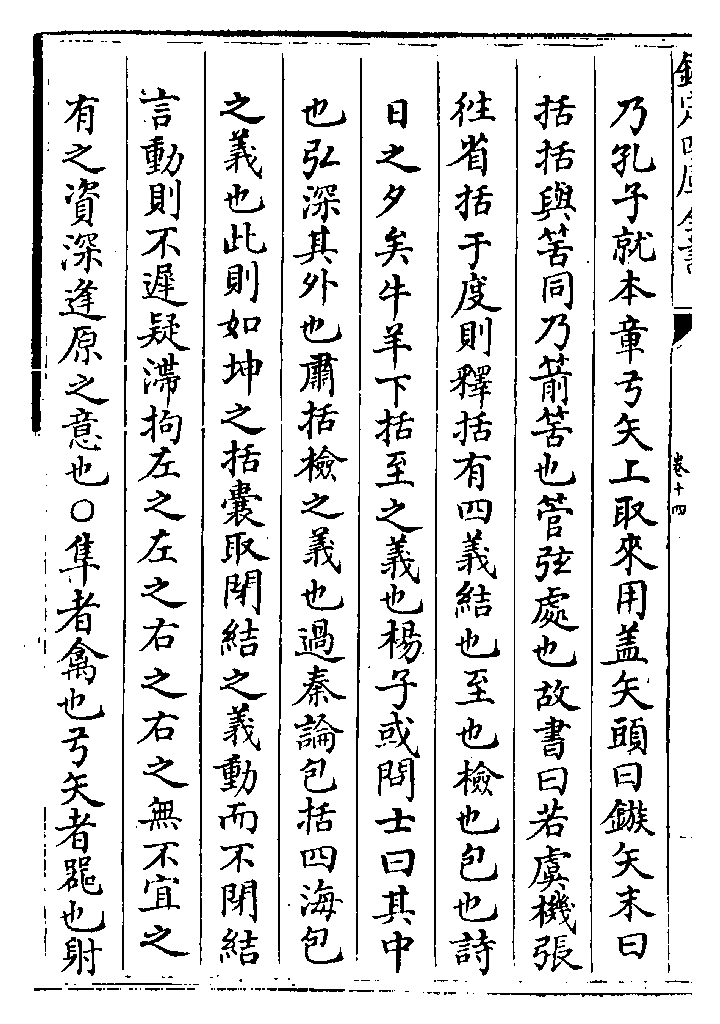 欽定四庫全書
卷十四
乃孔子就本章弓矢上取來用盖矢頭曰鏃矢末曰
括括與筈同乃箭筈也管弦處也故書曰若虞機張
往省括于度則釋括有四義結也至也檢也包也詩
日之夕矣牛羊下括至之義也楊子或問士曰其中
也弘深其外也肅括檢之義也過秦論包括四海包
之義也此則如坤之括囊取閉結之義動而不閉結
言動則不遲疑滯拘左之左之右之右之無不宜之
有之資深逢原之意也○隼者禽也弓矢者器也射